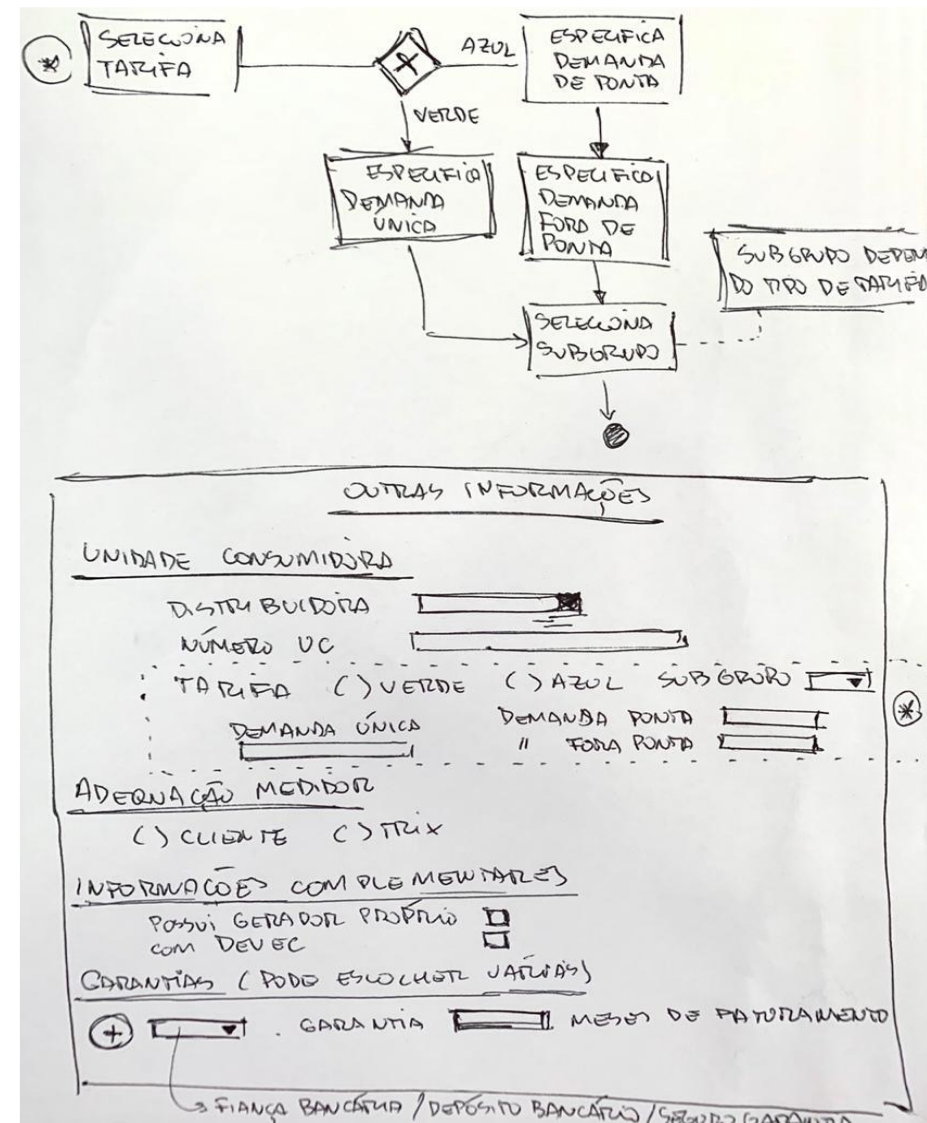 *
SELECIONA
TARIFA
AZUL
ESPECIFICA
DEMANDA
DE PONTA
VERDE
ESPECIFICA
DEMANDA
ÚNICA
ESPECIFICA
DEMANDA
FORA DE
PONTA
SUBGRUPO DEPEN
DO TIPO DE TARIFA
SELECIONA
SUBGRUPO
OUTRAS INFORMAÇÕES
UNIDADE CONSUMIDORA
DISTRIBUIDORA
NÚMERO UC
TARIFA ( ) VERDE ( ) AZUL SUBGRUPO
*
DEMANDA ÚNICA DEMANDA PONTA
" FORA PONTA
ADEQUAÇÃO MEDIDOR
( ) CLIENTE ( ) TRIX
INFORMAÇÕES COMPLEMENTARES
POSSUI GERADOR PRÓPRIO
COM DEVEC
GARANTIAS (PODE ESCOLHER VÁRIAS)
+ . GARANTIA MESES DE FATURAMENTO
FIANÇA BANCÁRIA / DEPÓSITO BANCÁRIO / SEGURO GARANTIA